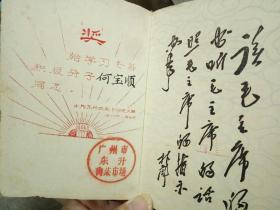 奖
给学习毛著
积极分子何宝顺
同志
广州市
东升
肉菜市场
读毛主席的
书听毛主席的话
照毛主席的指示
办事
林彪